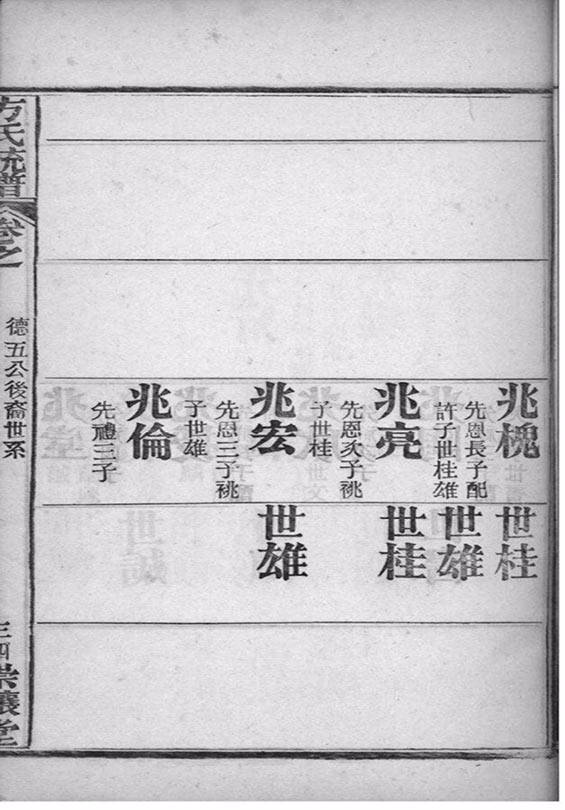 兆槐
先恩長子配
許子世桂雄
兆亮
先恩次子祧
子世桂
兆宏
先恩三子祧
子世雄
兆倫
先禮三子
世桂
世雄
世桂
世雄
方氏統譜
卷之
德五公後裔世系
三四
堂